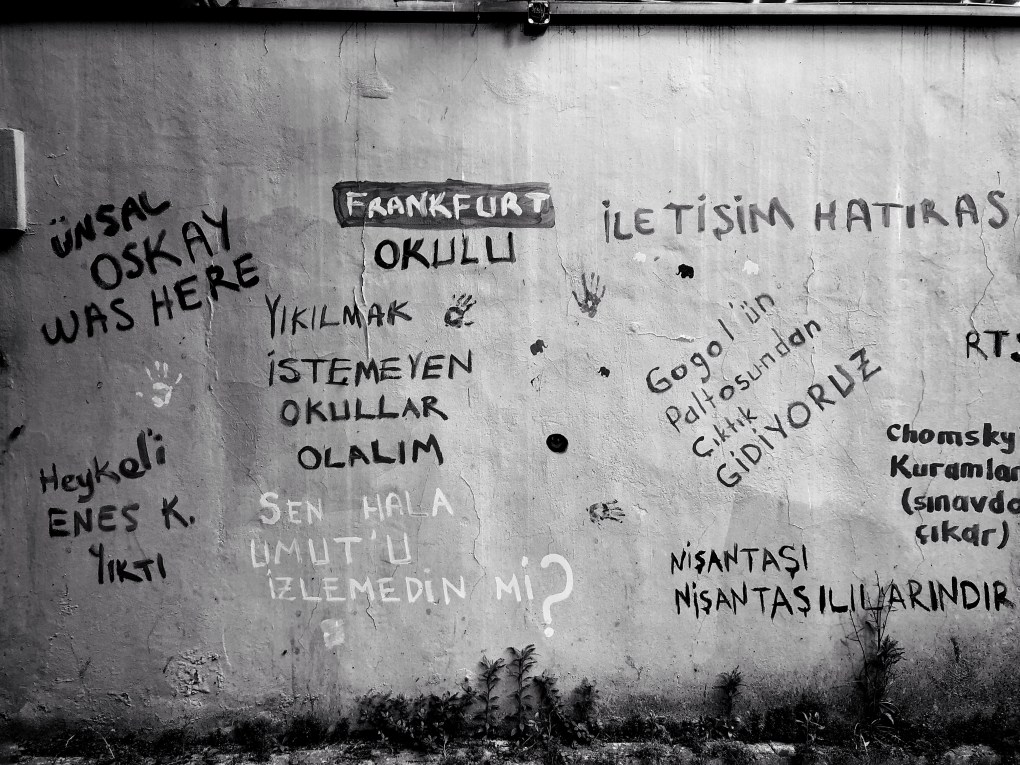 ÜNSAL
OSKAY
WAS HERE
FRANKFURT
OKULU
İLETİŞİM HATIRAS
YIKILMAK
İSTEMEYEN
OKULLAR
OLALIM
Gogol'ün
Paltosundan
Çıktık
GİDİYORUZ
RTS
Chomsky
Kuramlar
(sınavda
çıkar)
Heykeli
ENES K.
YIKTI
SEN HALA
UMUT'U
İZLEMEDİN Mİ?
NİŞANTAŞI
NİŞANTAŞILILARINDIR